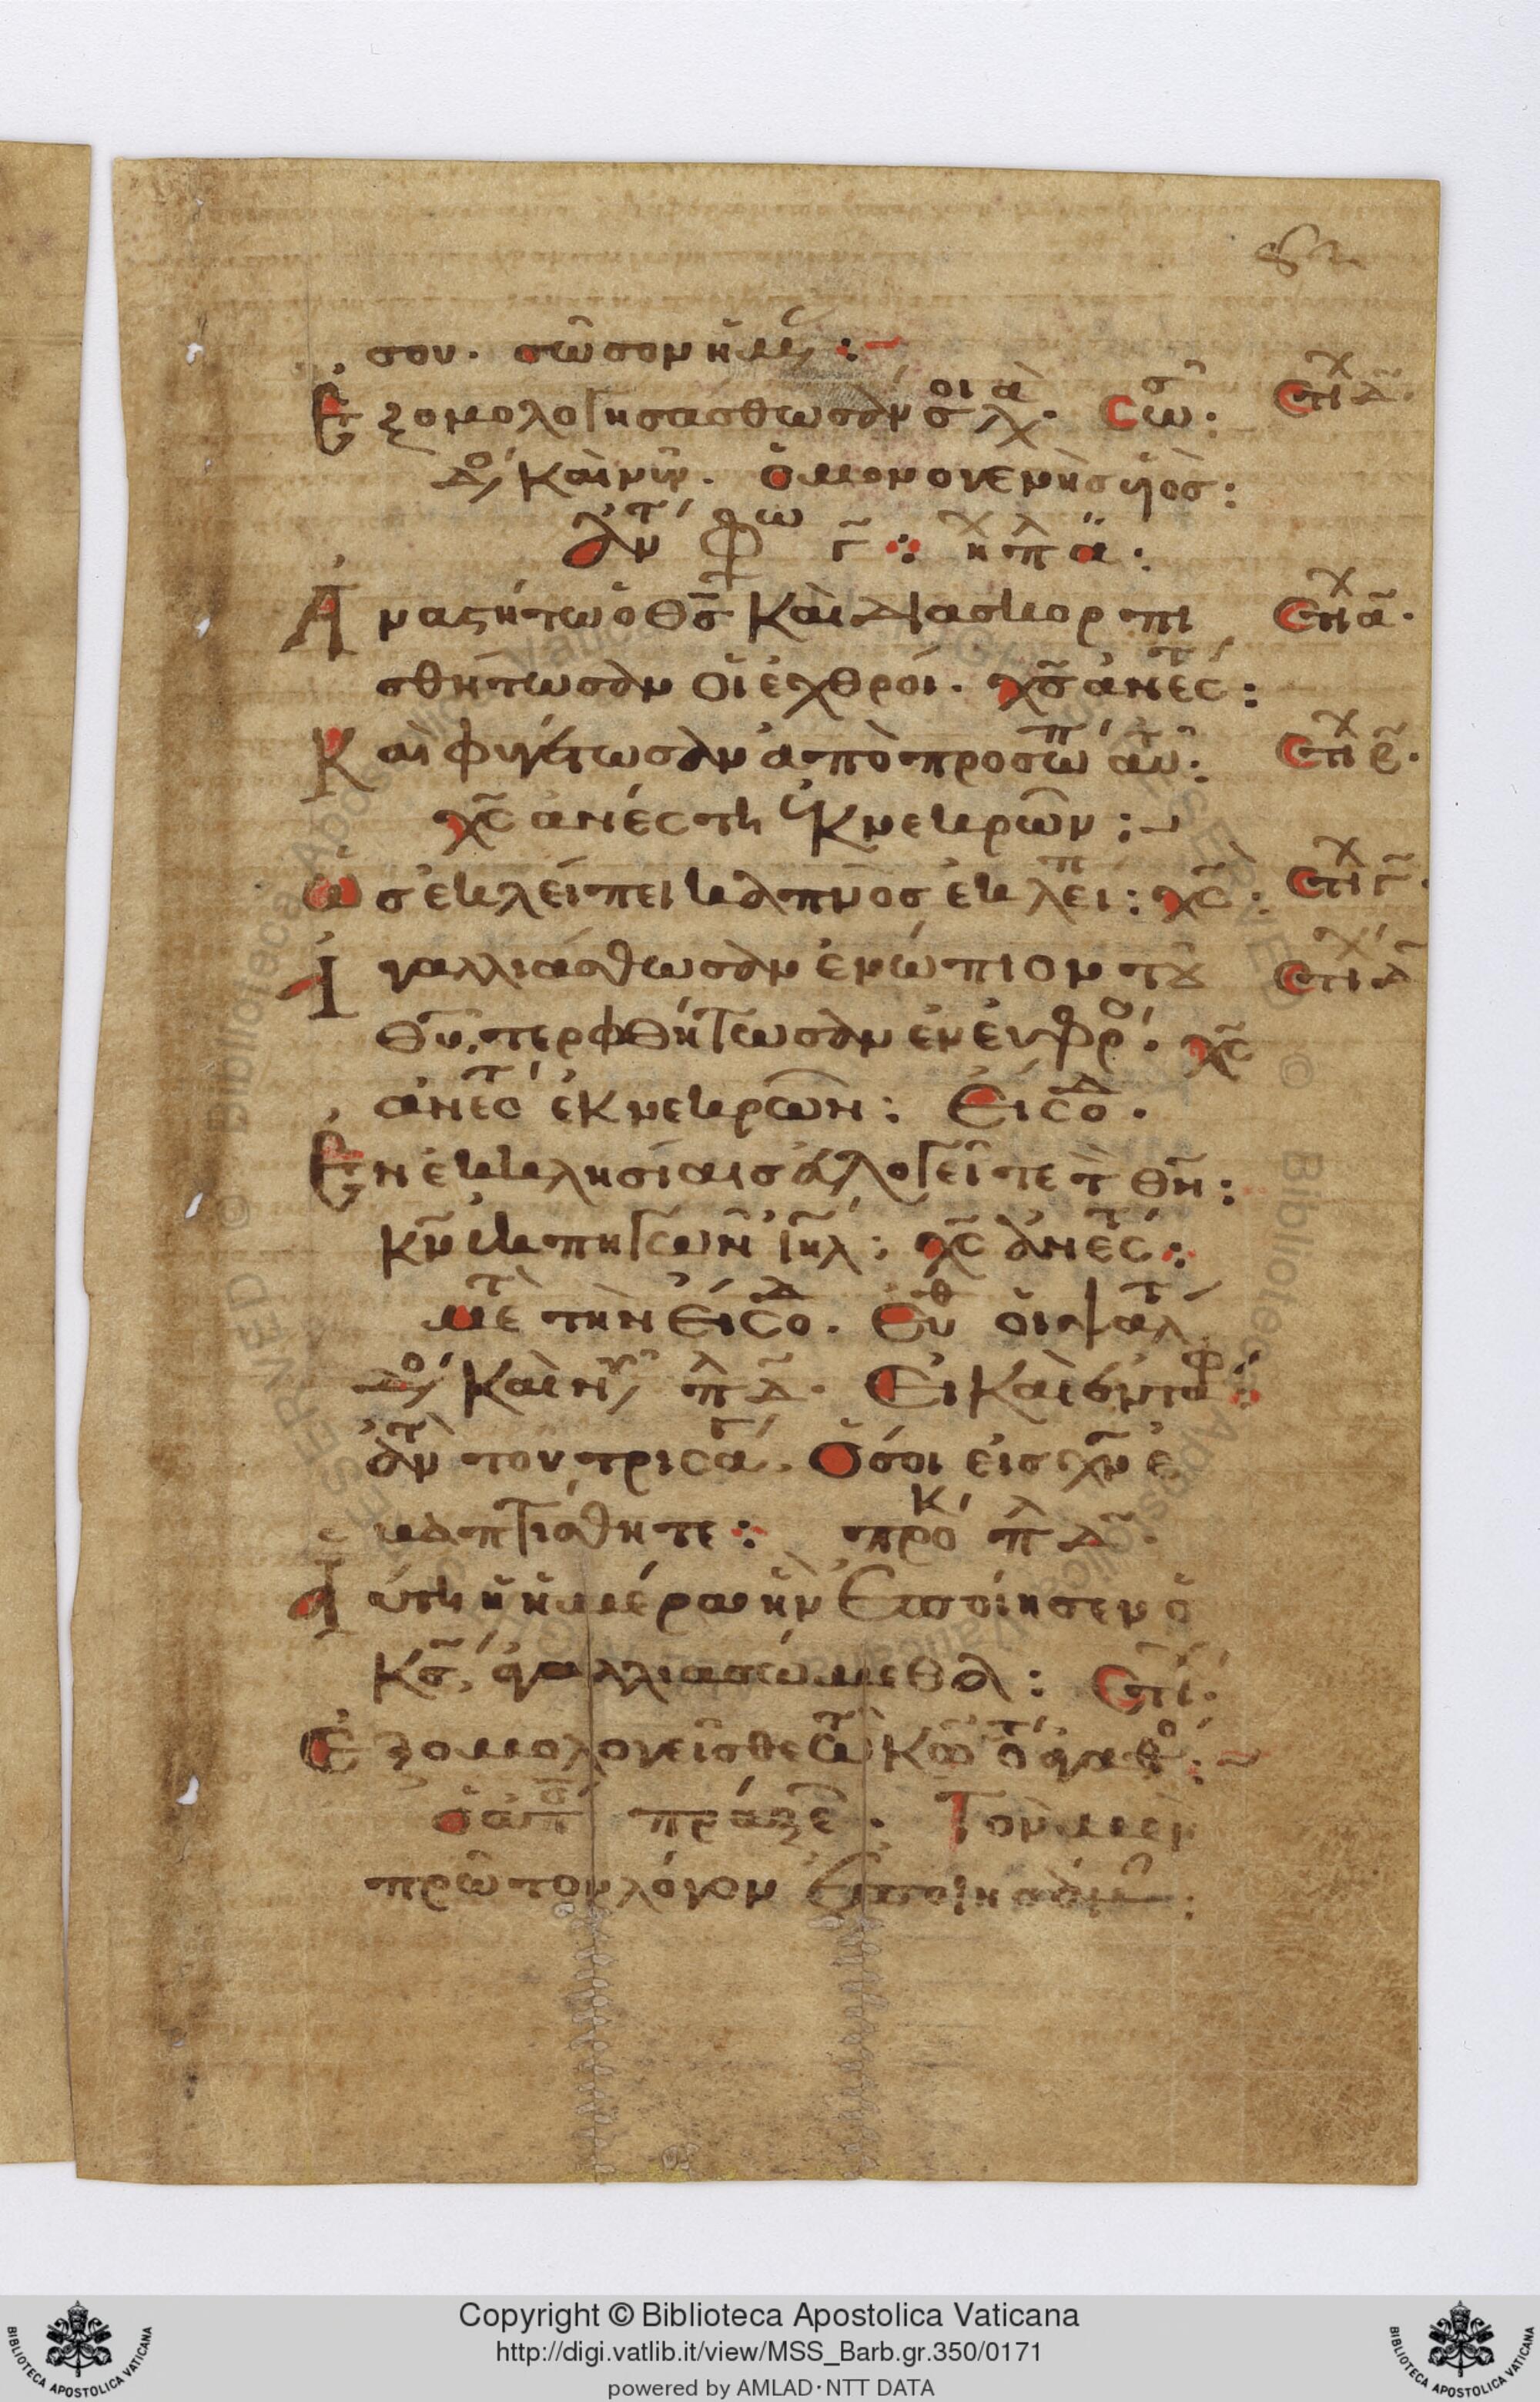 σου. σῶσον ἡμ
Ἐξομολογησάσθωσάν σ οι λ. Σω:
Δο καὶ νῦν. Ὁ μονογενὴς ὑιὸς:
Ἀντ γ ἦχ πλ α:
Ἀναστήτω ὁ θς καὶ διασκορπι
σθήτωσαν οἱ ἐχθροί. χς ἀνέστ:
Καὶ φυγέτωσαν ἀπὸ προσώπ αυτ:
χς ἀνέστη ἐκ νεκρῶν:
Ὡς ἐκλείπει καπνὸς ἐκλειπ: χς:
Ἀγαλλιάσθωσαν ἐνώπιον τοῦ
θυ, τερφθήτωσαν ἐν ευφρο. χς
ἀνέστ ἐκ νεκρῶν: Εἰσοδ.
Ἐν ἐκκλησίαις ἐυλογεῖτε τ θν:
κν ἐκ πηγῶν ιηλ: χς ἀνέστ:
Μετ τὴν εἰσοδ. Ευθ οἱ ψαλτ
Δο καὶ νυν πλ δ. Εἰ καὶ ἐν ταφ:
ἀντ του τρισαγ. Ὅσοι εἰς χν ἐ
βαπτίσθητε: προκ πλ δ.
Αὕτη ἡ ἡμέρα ἣν ἐποίησεν ὁ
κς, ἀγαλλιασώμεθα: Στι.
Ἐξομολογεῖσθε τῶ κω ὅτι ἀγαθο:
ὁ ἀποσ πράξε. Τὸν μὲν
πρῶτον λόγον ἐποιησάμ:
Στιχ δ.
Στιχ α.
Στιχ β.
Στιχ γ.
Στιχ δ
Copyright © Biblioteca Apostolica Vaticana
http://digi.vatlib.it/view/MSS_Barb.gr.350/0171
powered by AMLAD·NTT DATA
BIBLIOTECA APOSTOLICA VATICANA
BIBLIOTECA APOSTOLICA VATICANA